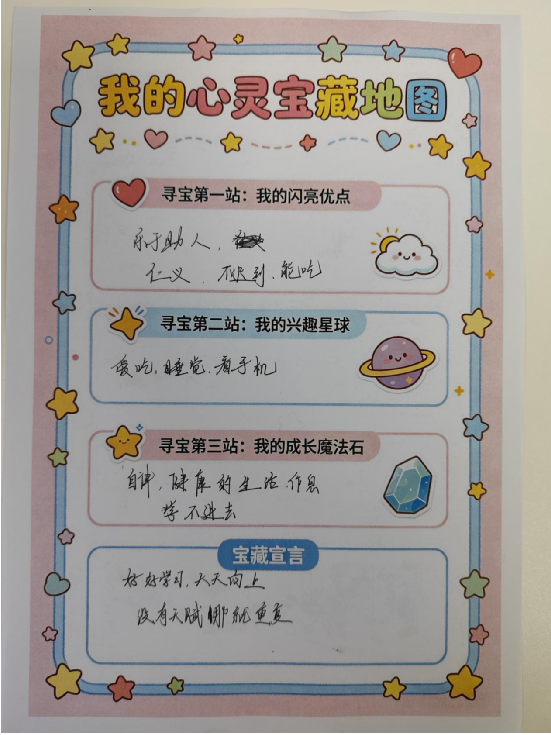 我的心灵宝藏地图
寻宝第一站：我的闪亮优点
乐于助人、
仁义、不迟到、能吃
寻宝第二站：我的兴趣星球
爱吃，睡觉，看手机
寻宝第三站：我的成长魔法石
自律，健康的生活作息
学不进去
宝藏宣言
好好学习，天天向上
没有天赋那就重复